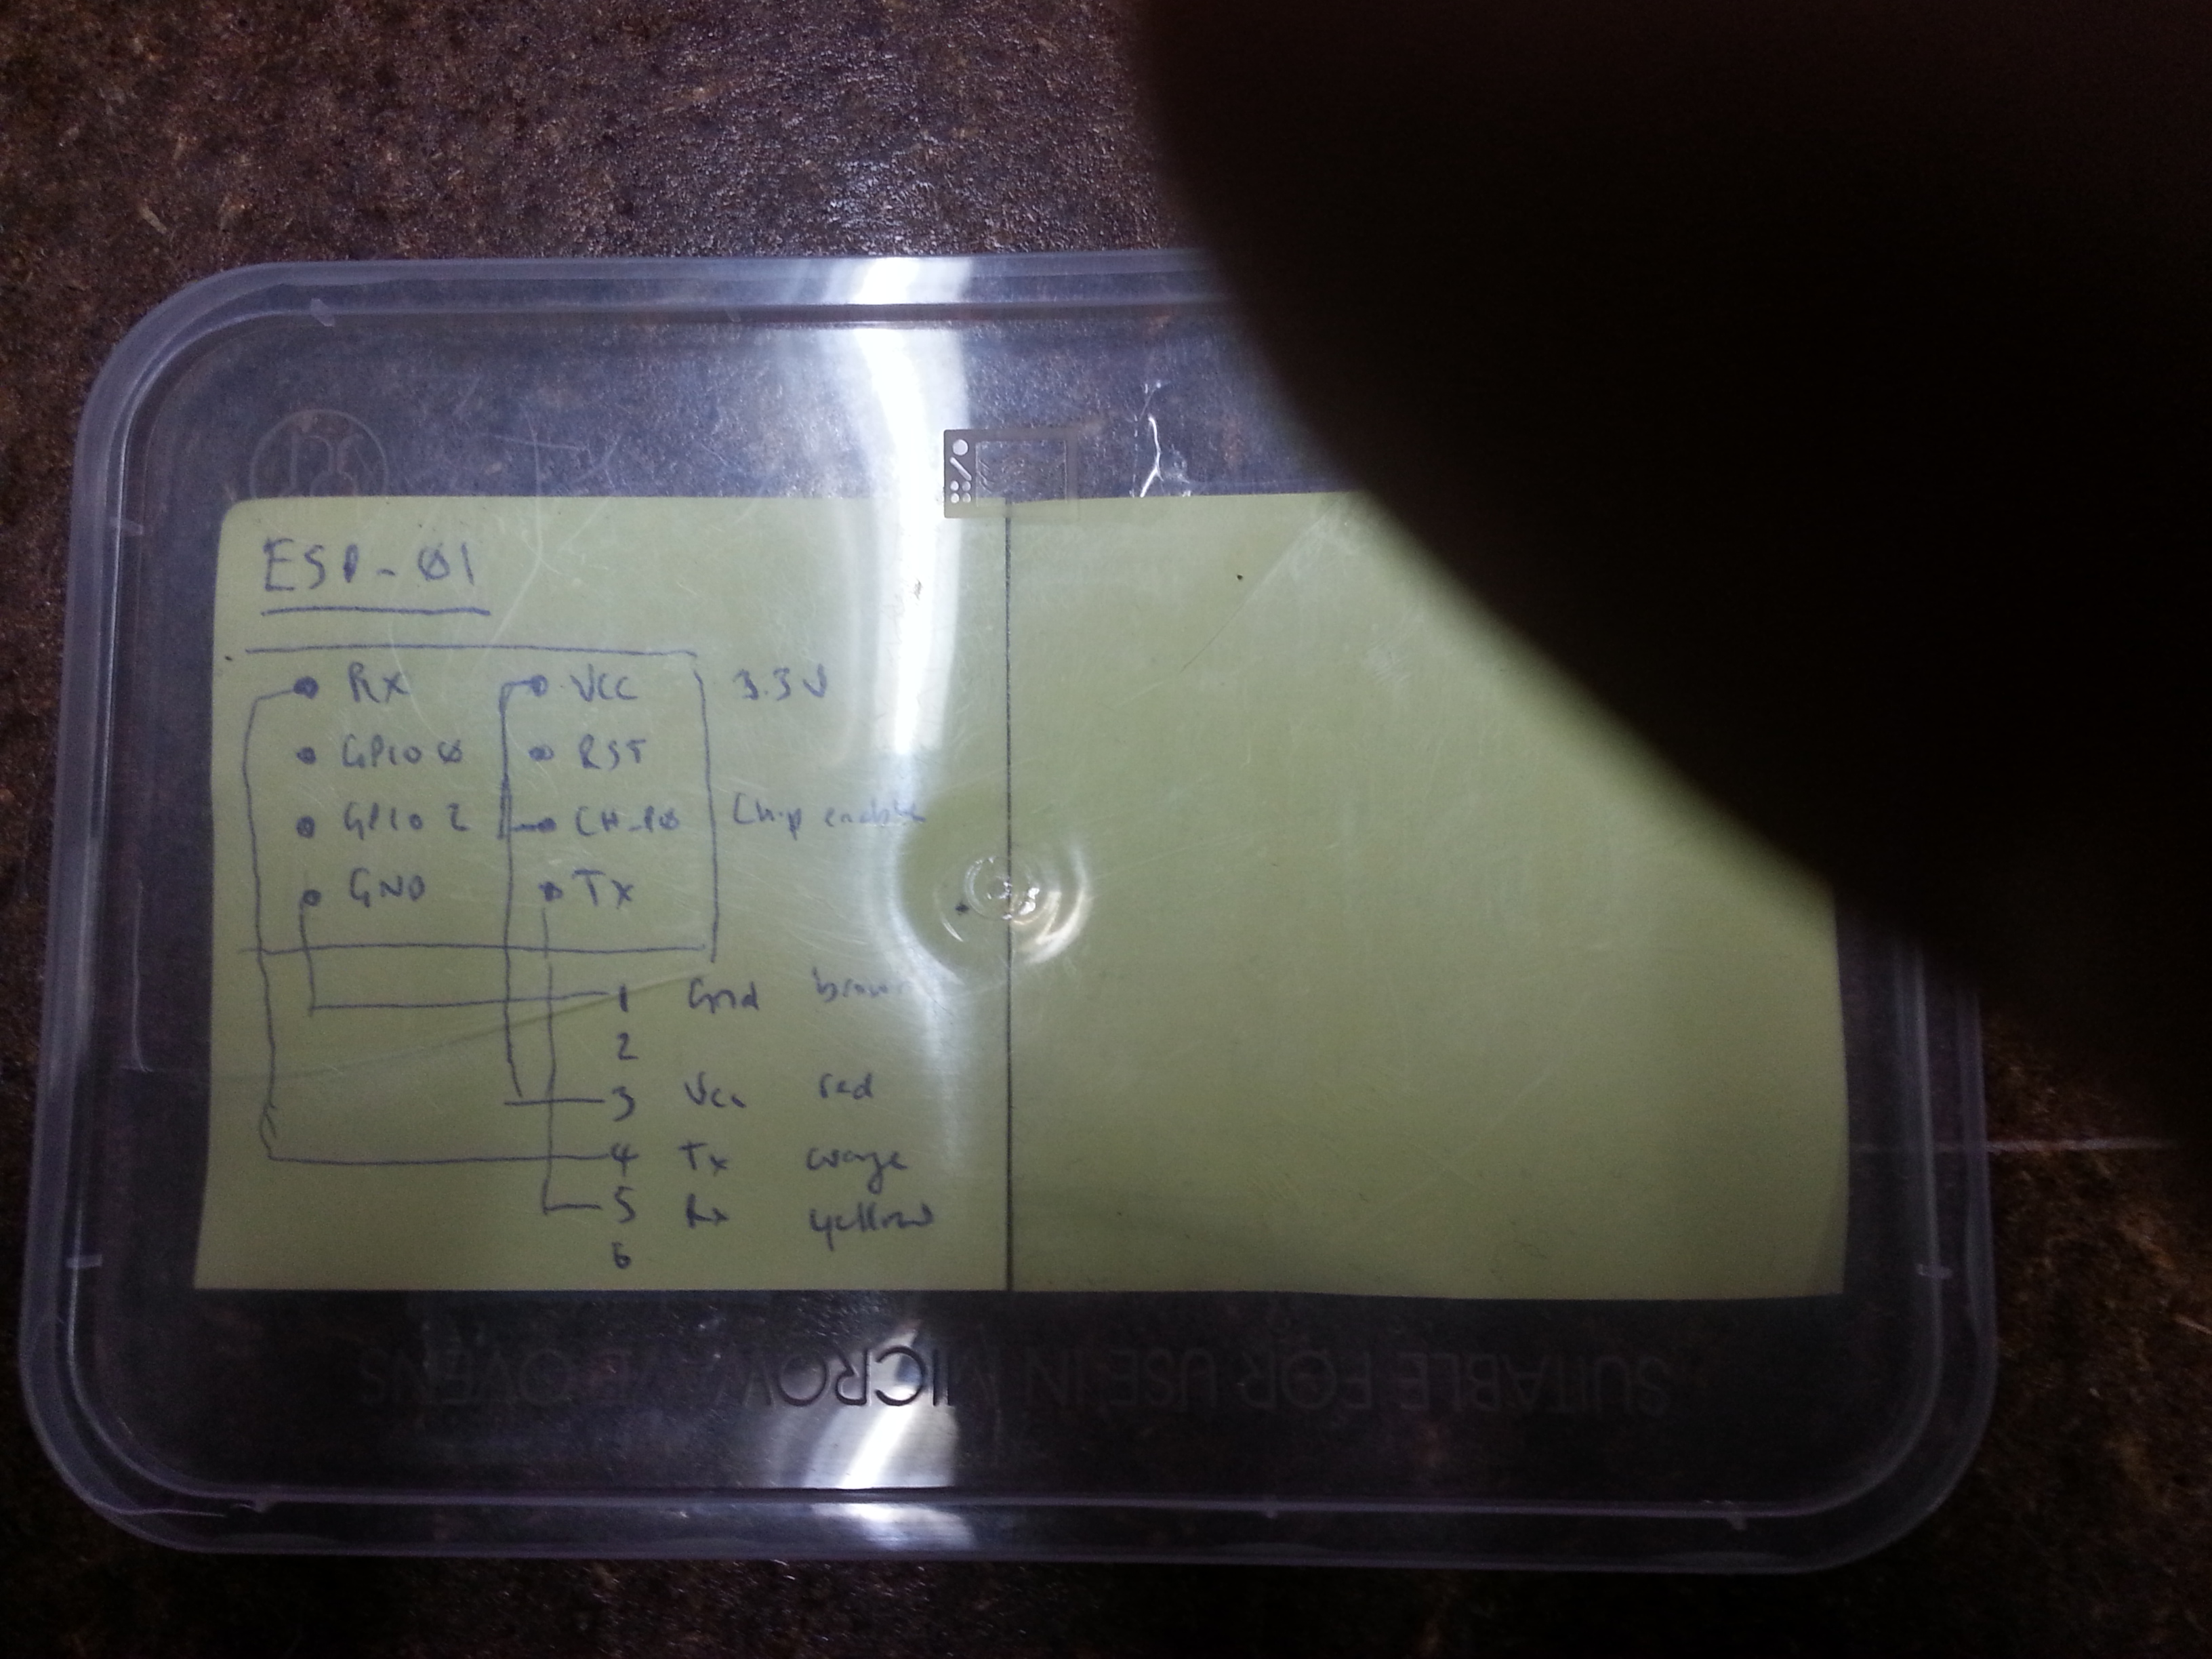 ESP-01
RX VCC 3.3V
GPIO 0 RST
GPIO 2 CH_PD Chip enable
GND TX
1 Gnd brown
2
3 Vcc red
4 Tx orange
5 Rx yellow
6
SUITABLE FOR USE IN MICROWAVE OVENS